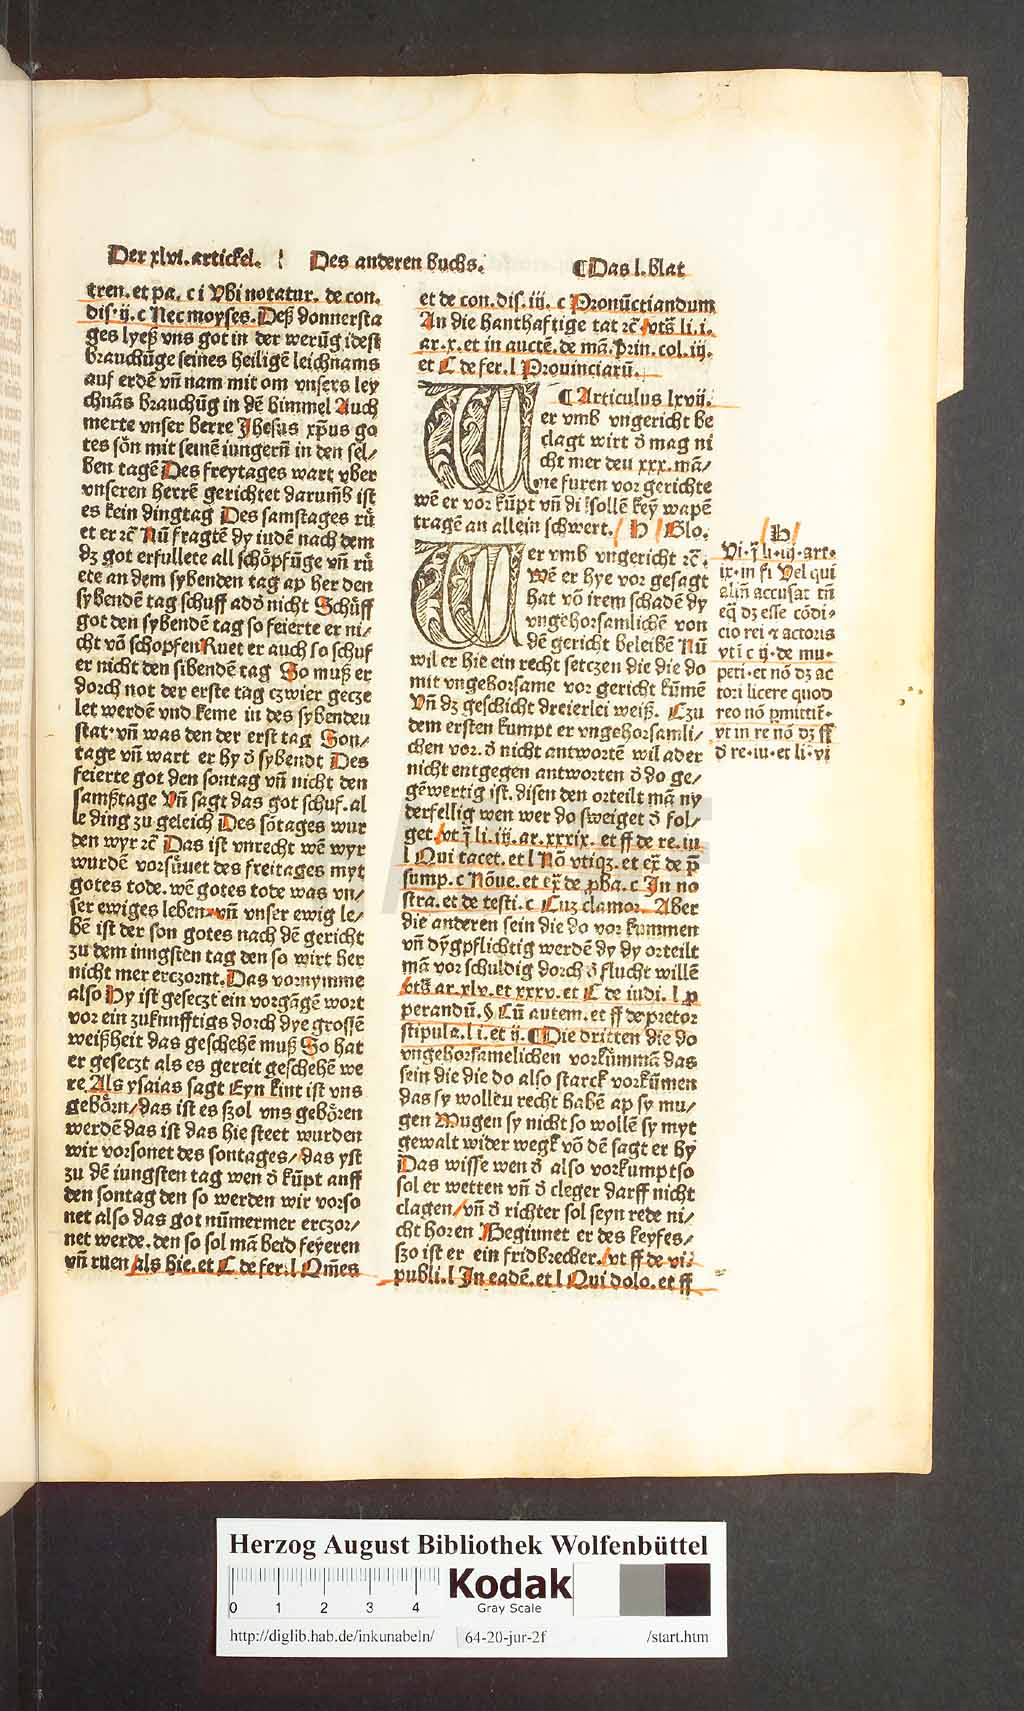 Der xlvi. artickel. Des anderen buchs. ¶Das l. blat
tren. et pa. c i Vbi notatur. de con.
dis. ij. c Nec moyses. Deß donnersta
ges lyeß vns got in der werūg idest
brauchūge seines heiligē leichnams
auf erdē vn̄ nam mit om vnsers ley
chnās brauchūg in dē himmel Auch
merte vnser herre Jhesus xp̄us go
tes sön mit seinē iungern̄ in den sel⸗
ben tagē Des freytages wart vber
vnseren herrē gerichtet darum̄b ist
es kein dingtag Des samstages rů
et er ꝛc̄ Nū fragtē dy iudē nach dem
dz got erfullete all schöpfūge vn̄ rů
ete an dem sybenden tag ap her den
sybendē tag schuff adð nicht Schůff
got den sybendē tag so feierte er ni⸗
cht vō schopfen Ruet er auch so schuf
er nicht den sibendē tag So muß er
dorch not der erste tag czwier gecze
let werdē vnd keme in des sybenden
stat. vn̄ was den der erst tag Son⸗
tage vn̄ wart er hy ð sybendt Des
feierte got den sontag vn̄ nicht den
samßtage Vn̄ sagt das got schuf. al
le ding zu geleich Des sōtages wur
den wyr ꝛc̄ Das ist vnrecht wē wyr
wurdē vorsůnet des freitages myt
gotes tode. wē gotes tode was vn⸗
ser ewiges leben vn̄ vnser ewig le⸗
bē ist der son gotes nach dē gericht
zu dem iungsten tag den so wirt her
nicht mer erczornt. Das vornymme
also Hy ist geseczt ein vorgāgē wort
vor ein zukunfftigs dorch dye grossē
weißheit das geschehē muß So hat
er geseczt als es gereit geschehē we
re. Als ysaias sagt Eyn kint ist vns
gebörn/das ist es szol vns gebören
werdē das ist das hie steet wurden
wir vorsonet des sontages/das yst
zu dē iungsten tag wen ð kūpt auff
den sontag den so werden wir vorso
net also das got nūmermer erczor⸗
net werde. den so sol mā beid feyeren
vn̄ ruen als hie. et C de fer. l Om̄es
et de con. dis. iii. c Pronūctiandum
An die hanthaftige tat ꝛc̄ vts̄ li. i.
ar. x. et in auctē. de mā. prin. col. iij.
et C de fer. l Prouinciarū.
¶Articulus lxvij.
Wer vmb vngericht be
clagt wirt ð mag ni
cht mer den xxx. mā⸗
ne furen vor gerichte
wē er vor kūpt vn̄ di sollē key̅ wapē
tragē an allein schwert. / H / Glo.
Wer vmb vngericht ꝛc̄.
Wē er hye vor gesagt
hat vō irem schadē dy
vngehorsamlichē von
dē gericht beleibē Nū
wil er hie ein recht setczen die die do
mit vngehorsame vor gericht kůmē
Vn̄ dz geschicht dreierlei weiß. Czu
dem ersten kumpt er vngehorsamli⸗
chen vor. ð nicht antwortē wil ader
nicht entgegen antworten ð do ge⸗
gēwertig ist. disen den orteilt mā ny
derfellig wen wer do sweiget ð fol⸗
get. vt j̄ li. iij. ar. xxxix. et ff de re. iu
l Qui tacet. et l Nō vtiqz. et ex̄ de p̄
sump. c Nōue. et ex̄ de p̱ba. c In no
stra. et de testi. c Cuz clamor. Aber
die anderen sein die do vor kummen
vn̄ dȳgpflichtig werdē dy dy orteilt
mā vor schuldig dorch ð flucht willē
vts̄ ar. xlv. et xxxv. et C de iudi. l p̱
perandū. § Cū autem. et ff de pretor
stipula. l i. et ij. ¶Die dritten die do
vngehorsamelichen vorkůmmā das
sein die die do also starck vorkůmen
das sy wollen recht habē ap sy mu⸗
gen Mugen sy nicht so wollē sy myt
gewalt wider wegk vō dē sagt er hy
Das wisse wen ð also vorkumpt so
sol er wetten vn̄ ð cleger darff nicht
clagen/vn̄ ð richter sol seyn rede ni⸗
cht horen Beginnet er des keyses⸗
szo ist er ein fridbrecher. vt ff de vi.
publi. l In eadē. et l Qui dolo. et ff
/H/
Vi. j̄ li. iij. art.
ix. in fi Vel qui
aliū accusat tn̄
eq̄ dz esse cōdi⸗
cio rei ⁊ actoris
vti c ij. de mu⸗
peti. et nō dz ac
tori licere quod
reo nō p̱mittit̄.
vt in re nō dz ff
ð re. iu. et li. vi
Herzog August Bibliothek Wolfenbüttel
0 1 2 3 4
Kodak
Gray Scale
http://diglib.hab.de/inkunabeln/ 64-20-jur-2f /start.htm